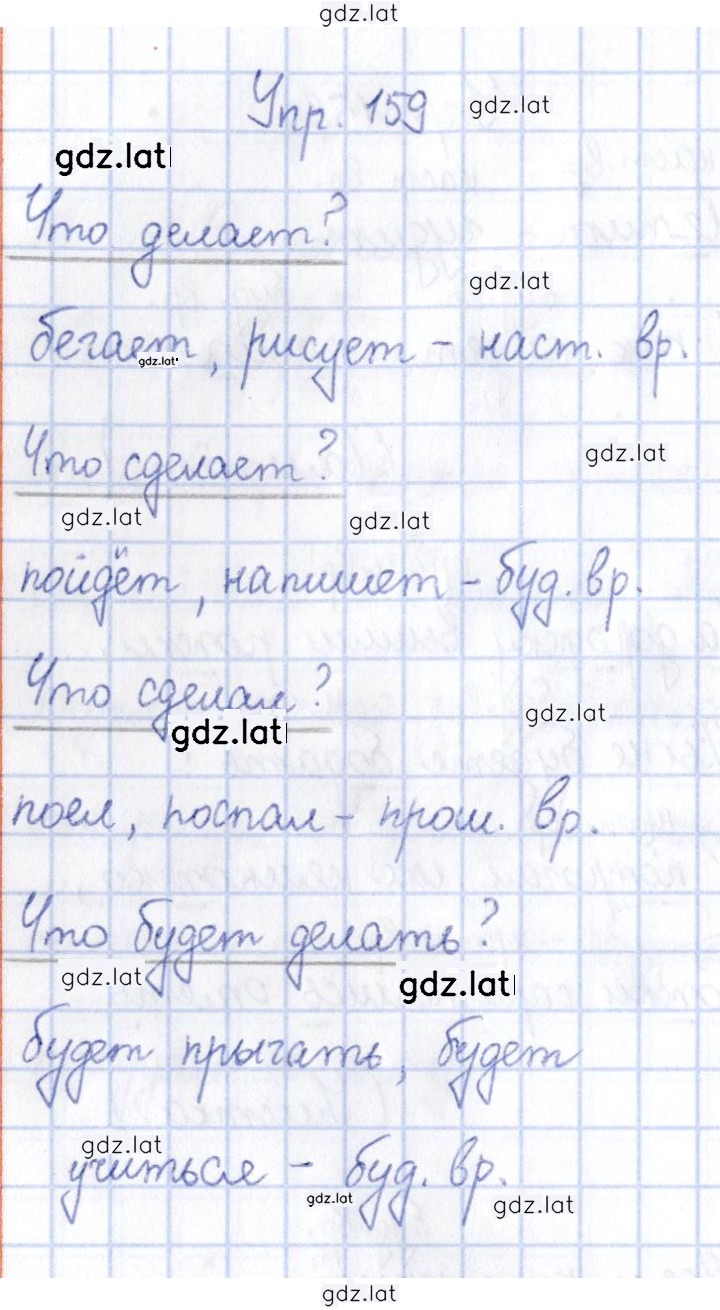 gdz.lat
Упр. 159
gdz.lat
gdz.lat
Что делает?
gdz.lat
бегает, рисует – наст. вр.
gdz.lat
Что сделает?
gdz.lat
gdz.lat
gdz.lat
пойдёт, напишет – буд. вр.
Что сделал?
gdz.lat
gdz.lat
поел, поспал – прош. вр.
Что будет делать?
gdz.lat
gdz.lat
будет прыгать, будет
gdz.lat
учиться – буд. вр.
gdz.lat
gdz.lat
gdz.lat